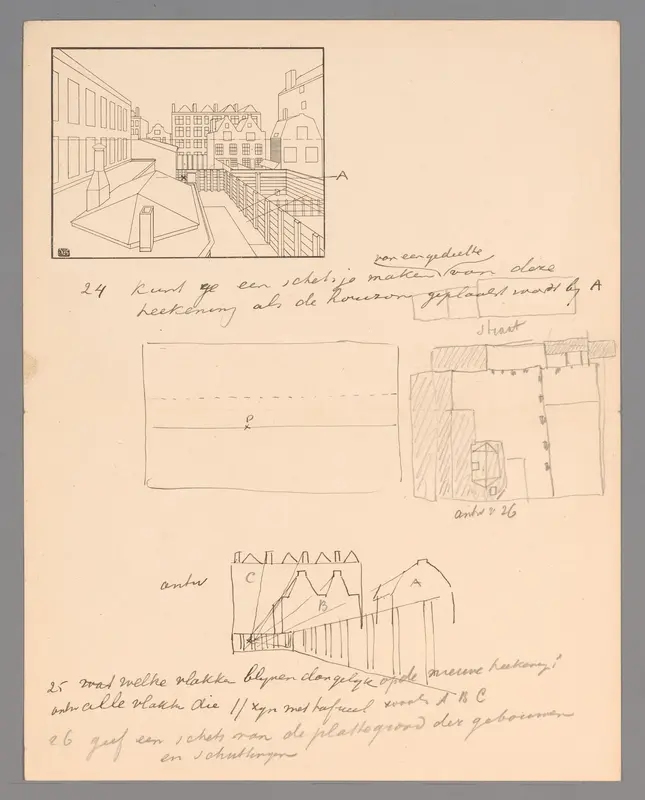 A
24 kunt ge een schetsje maken van een gedeelte van deze
teekening als de horizon geplaatst wordt by A
straat
P
antw v 26
antw
C
B
A
25 welke vlakken blyven dangelyk op de nieuwe teekening?
antw alle vlakk die // zyn met tafreel zooals A B C
26 geef een schets van de plattegrond der gebouwen
en schuttingen